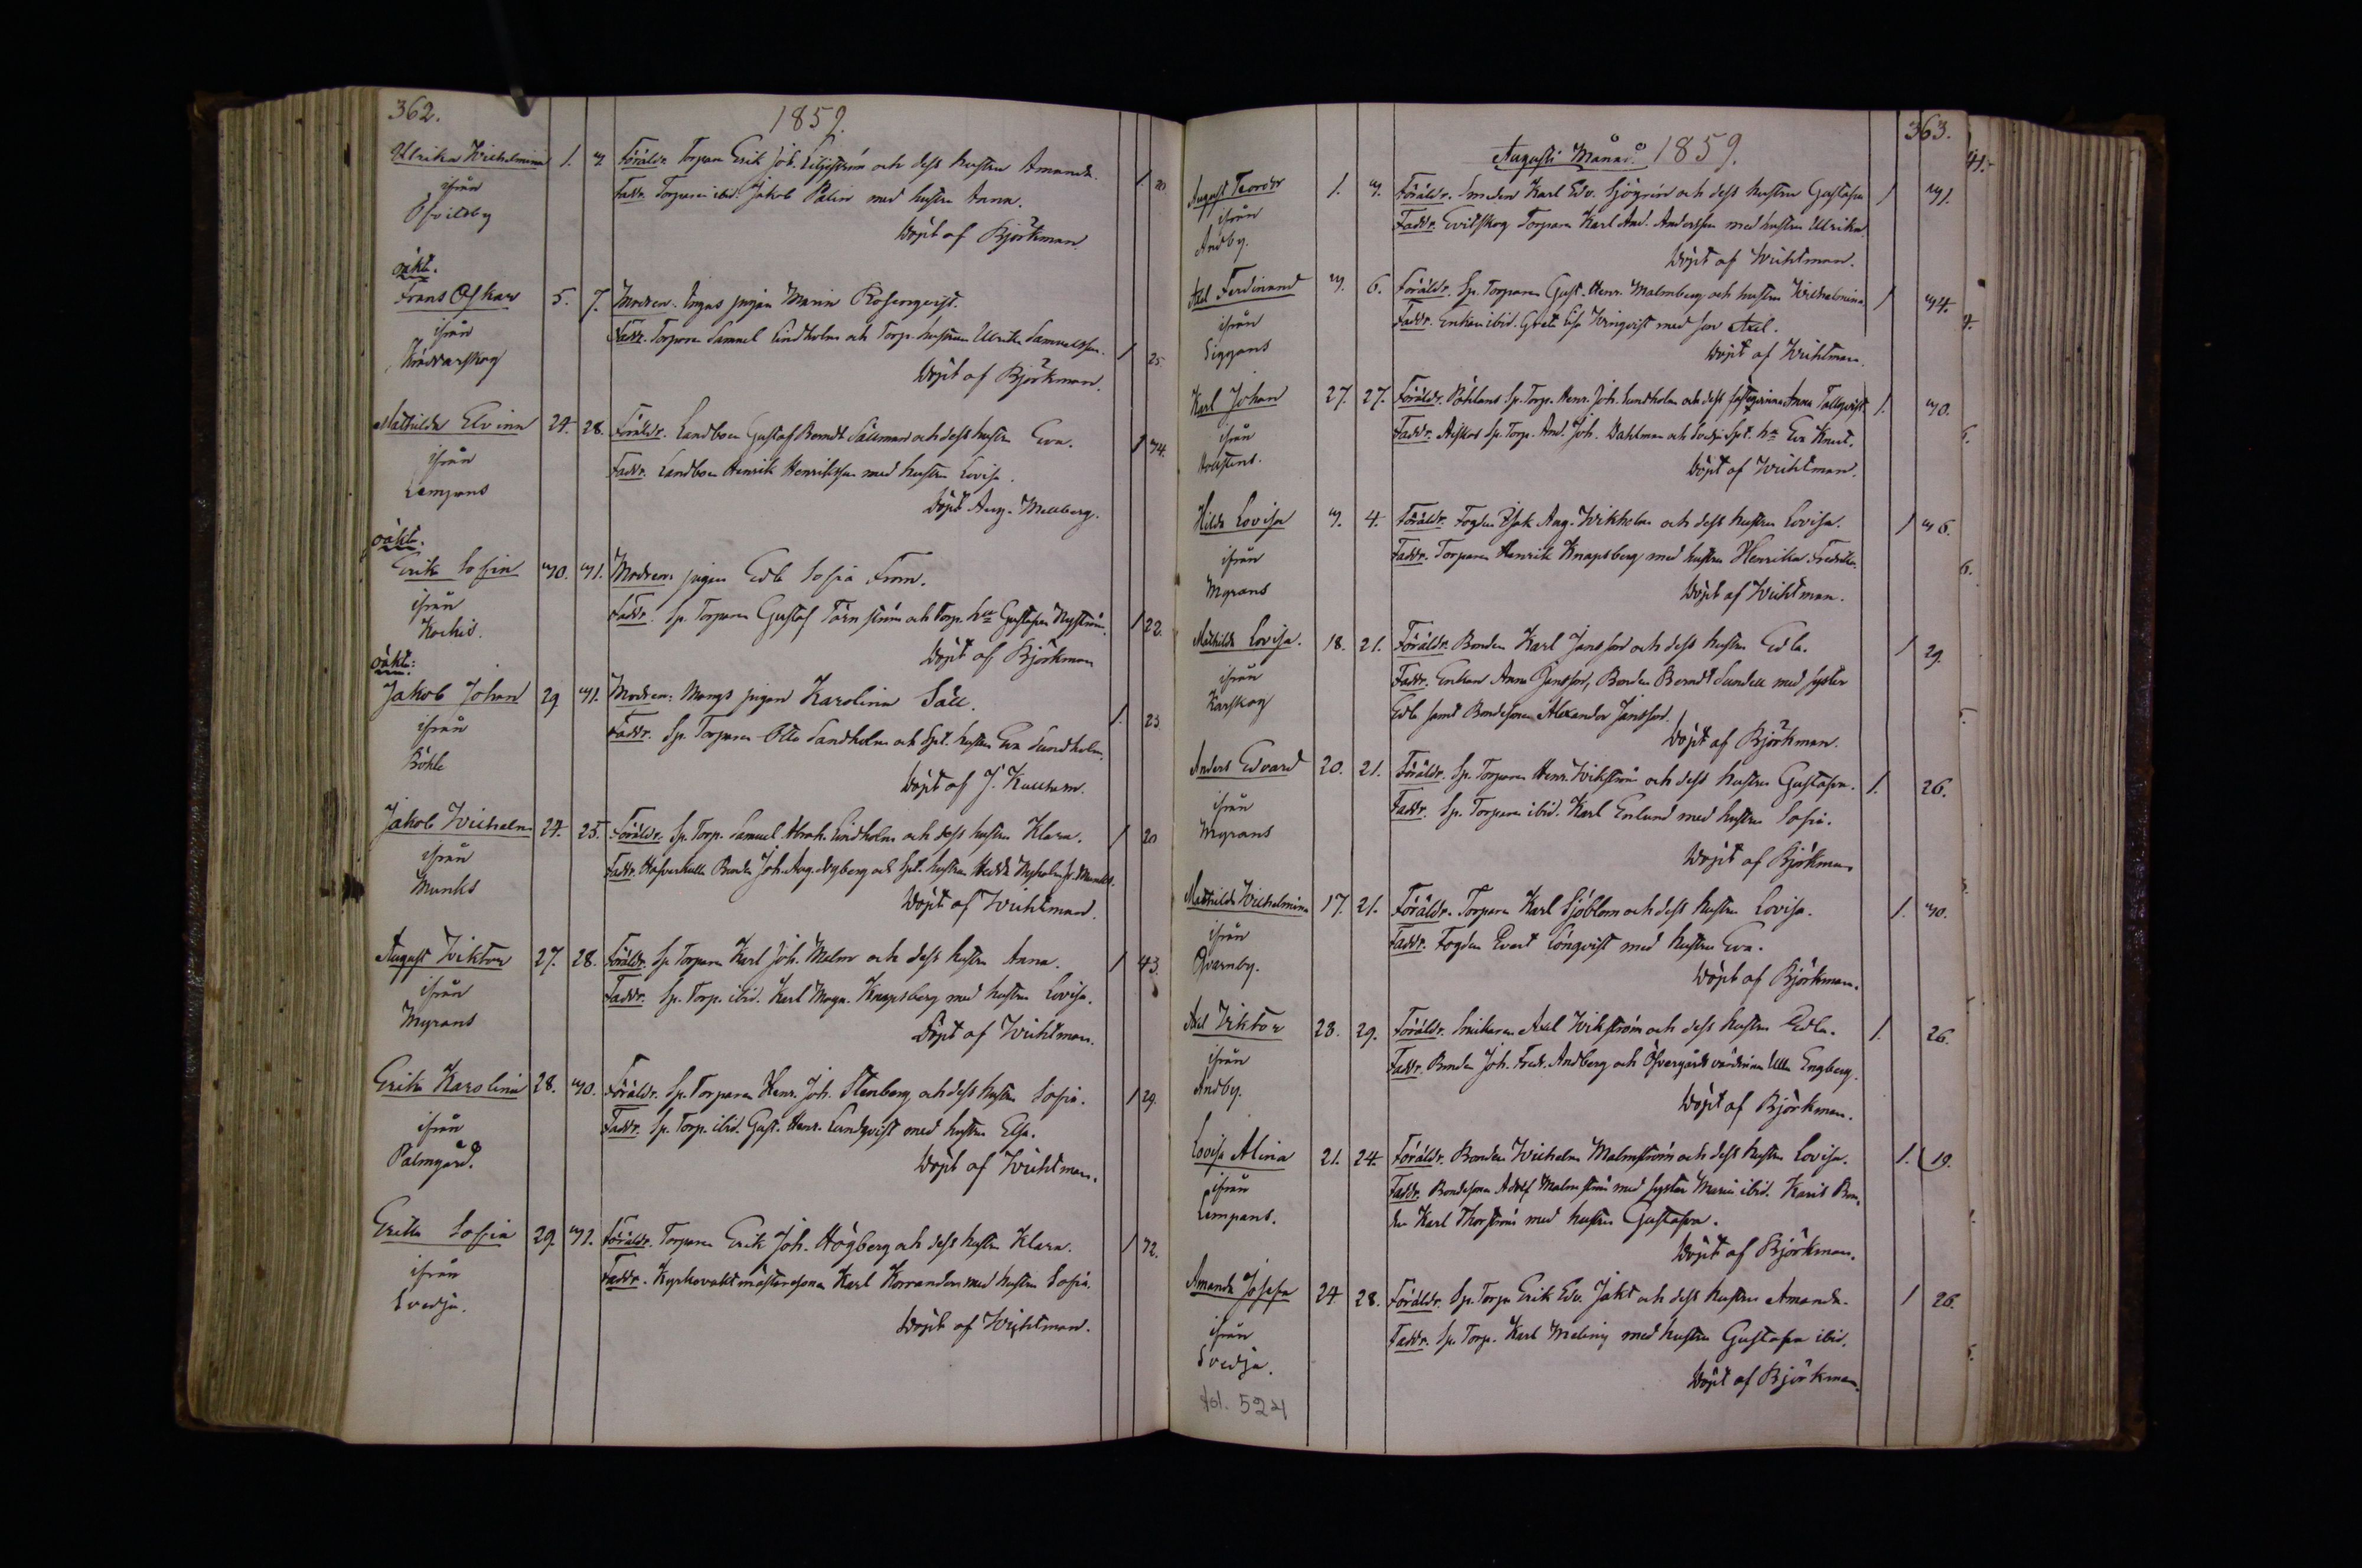 362.
1859.
Ulrika Wilhelmina 1. Föräldr. Torparn Erik Joh. Liljeström och dess hustru Amanda. 1
ifrån Faddr. Torparen ibid. Jakob Palin med hustru Anna.
Öfvitsby
Döpt af Björkman.
oäkt.
Frans Oskar 5. 7. Modren: pigan Maria Rosenqvist.
ifrån Faddr. Torparen Samuel Lindholm och Torp. hustrun Ulrika Samuelsson. 1 25.
Döpt af Björkman.
Mathilda Elvina 24. 28. Föräldr. Landboen Gustaf Berndt Sällman och dess hustru Eva. 1 34.
ifrån Faddr. Landboen Henrik Henriksson med hustru Lovisa.
Lempans
Döpt Aug. Mellberg.
oäkt.
Erika Sofia 30. 31. Modren: pigan Edla Sofia From.
ifrån Faddr. Sp. Torparen Gustaf Törnström och Torp. hu Gustafva Nyström. 1 22.
Kockis.
Döpt af Björkman
oäkt:
Jakob Johan 29 31. Modren: Mangs pigan Karolina Säll.
ifrån Faddr. Sp. Torparen Otto Sandholm och Spl. hustru Eva Sundholm. 1. 23
Böhle
Döpt af J.
Jakob Wilhelm 24. 25. Föräldr. Sp. Torp. Samuel Abrah. Lindholm och dess hustru Klara. 1 20
ifrån Faddr. Bonden Joh. Aug. Nyberg och Spl. hustrun Hedda Nyholm fr. Munks.
Munks
Döpt af Wichtman.
August Viktor 27. 28. Föräldr. Sp. Torparen Karl Joh. Malm och dess hustru Anna. 1 43.
ifrån Faddr. Sp. Torp. ibid. Karl Magn. Knapsberg med hustru Lovisa.
Myrans
Döpt af Wichtman.
Erika Karolina 28. 30. Föräldr. Sp. Torparen Henr. Joh. Stenberg och dess hustru Sofia. 1 29.
ifrån Faddr. Sp. Torp. ibid. Gust. Henr. Lundqvist med hustru Elsa.
Palmgård.
Döpt af Wichtman.
Erika Sofia 29. 31. Föräldr. Torparen Erik Joh. Högberg och dess hustru Klara. 1 32.
ifrån Faddr. Kyrkovaktmästaresonen Karl Korrander med hustru Sofia.
Svedja.
Döpt af Wichtman.
363.
Augusti Månad. 1859.
August Teordor 1. Föräldr. Smeden Karl Edv. Sjögren och dess hustru Gustafva 1 31.
ifrån Faddr. Torparen Karl And. Andersson med hustru Ulrika
Andby.
Döpt af Wichtman.
Axel Ferdinand 3. 6. Föräldr. Sp. Torparen Gust. Henr. Malmberg och hustru Wilhelmina. 1 34.
ifrån Faddr. Enkan ibid. Greta Lisa med son Axel.
Siggans
Döpt af Wichtman.
Karl Johan 27. 27. Föräldr. Påhlans Sp. Torp. Henr. Joh. Sundholm och dess Anna Tallqvist 1. 30.
ifrån Faddr. Sp. Torp. And. Joh. Dahlman och Svedja Spl. hu Eva Knut.
Döpt af Wichtman.
Hilda Lovisa 3. 4. Föräldr. Fogden Isak Aug. Wikholm och dess hustru Lovisa. 1 36.
ifrån Faddr. Torparen Henrik Knapsberg med hustru Henrika Fredrika.
Myrans
Döpt af Wichtman.
Mathilda Lovisa. 18. 21. Föräldr. Bonden Karl Jansson och dess hustru Edla. 1 29.
ifrån Faddr. Enkan Anna Jansson, Bonden Berndt Sundell med syster
Karskog Edla samt Bondesonen Alexander Jansson.
Döpt af Björkman.
Anders Edvard 20. 21. Föräldr. Sp. Torparen Henr. Wikström och dess hustru Gustafva. 1. 26.
ifrån Faddr. Sp. Torparen ibid. Karl Enlund med hustru Sofia.
Myrans
Döpt af Björkman
Mathilda Wilhelmina 17. 21. Föräldr. Torparen Karl Sjöblom och dess hustru Lovisa. 1. 30.
ifrån Faddr. Fogden Evert Lönqvist med hustru Eva.
Qvarnby.
Döpt af Björkman.
Axel Viktor 28. 29. Föräldr. Snickaren Axel Wikström och dess hustru Edla. 1. 26.
ifrån Faddr. Bonden Joh. Fredr. Andberg och Öfvergårds värdinnan Ulla Engberg.
Andby.
Döpt af Björkman.
Lovisa Alina 21. 24. Föräldr. Bonden Wilhelm Malmström och dess hustru Lovisa. 1. 19.
ifrån Faddr. Bondesonen Adolf Malmström med syster Maria ibid. Karis Bon-
Lempans. den Karl Thorström med hustru Gustafva.
Döpt af Björkman.
Amanda Josefa 24 28. Föräldr. Sp. Torp. Erik Edv. Jakt och dess hustru Amanda. 1 26.
ifrån Faddr. Sp. Torp. Karl Maling med hustru Gustafva ibid.
Svedja.
Döpt af Björkman.
fol. 524